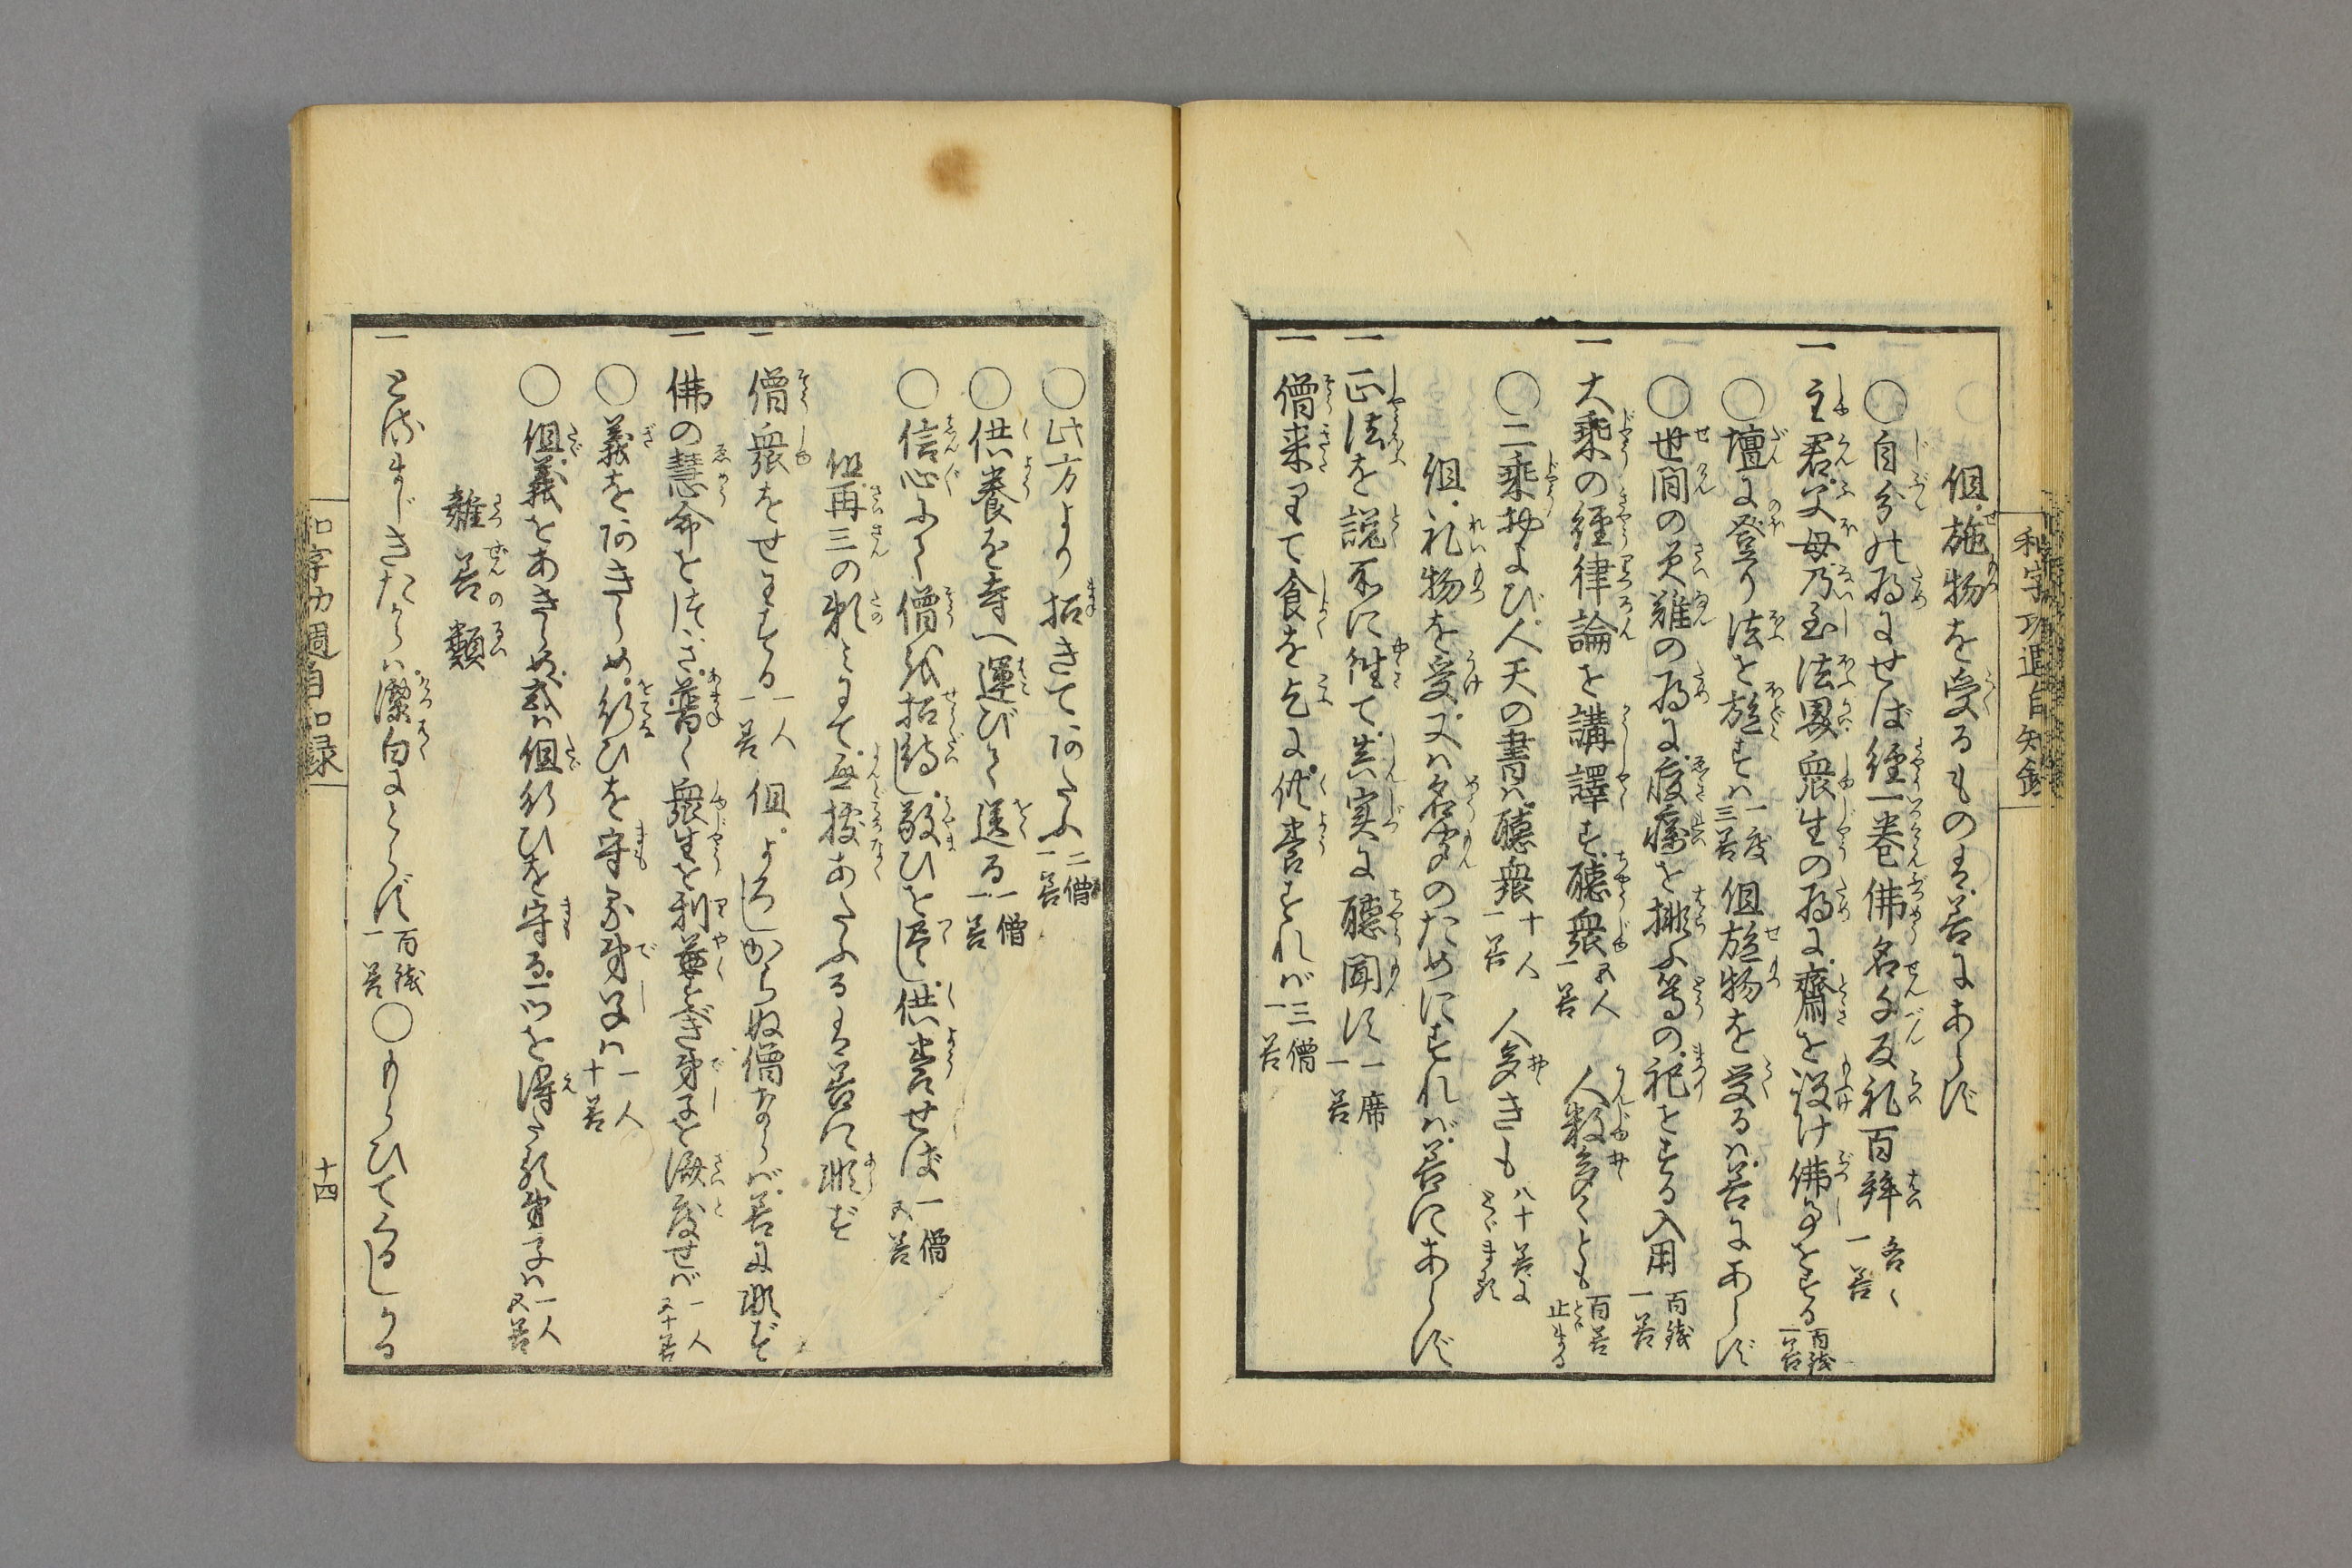 和字功過自知録
但施物を受るものは善にあらず
○自分の為にせば経一巻佛名千反礼百拝各々一善
一主君父母乃至法界衆生の為に齋を設け佛事をする百銭一善
○壇に登り法を施すは一度三善 但施物を受るは善にあらず
○世間の災難の為に疫癘を攘ふ等の祀をする入用百銭一善
一大乗の経律論を講譯す聴衆五人一善 人数多くとも百善止まる
○二乗およひ人天の書は聴衆十人一善 人多きも八十善にとゞまる
但礼物を受又は名聞のためにすれば善にあらず
一正法を説所に往て真実に聴聞す一席一善
一僧来りて食を乞に供養すれば三僧一善
○此方より招きてあたふ二僧一善
○供養を寺へ運びて送る一僧一善
○信心ふかく僧を招待し敬ひを尽し供養せば一僧五善
但再三の頼によりて無據あたふるは善に非ず
一僧衆をせわする一人一善 但よろしからぬ僧ならば善に非ず
一佛の慧命をつぎ普く衆生を利益すべき弟子を済度せば一人五十善
○義をあきらめ行ひを守る弟子は一人十善
○但義をあきらめ或は但行ひを守る一つを得たる弟子は一人五善
雑善の類
一とるまじきたからは潔白にとらず百銭一善○もらひてくるしかる
和字功過自知録 十四